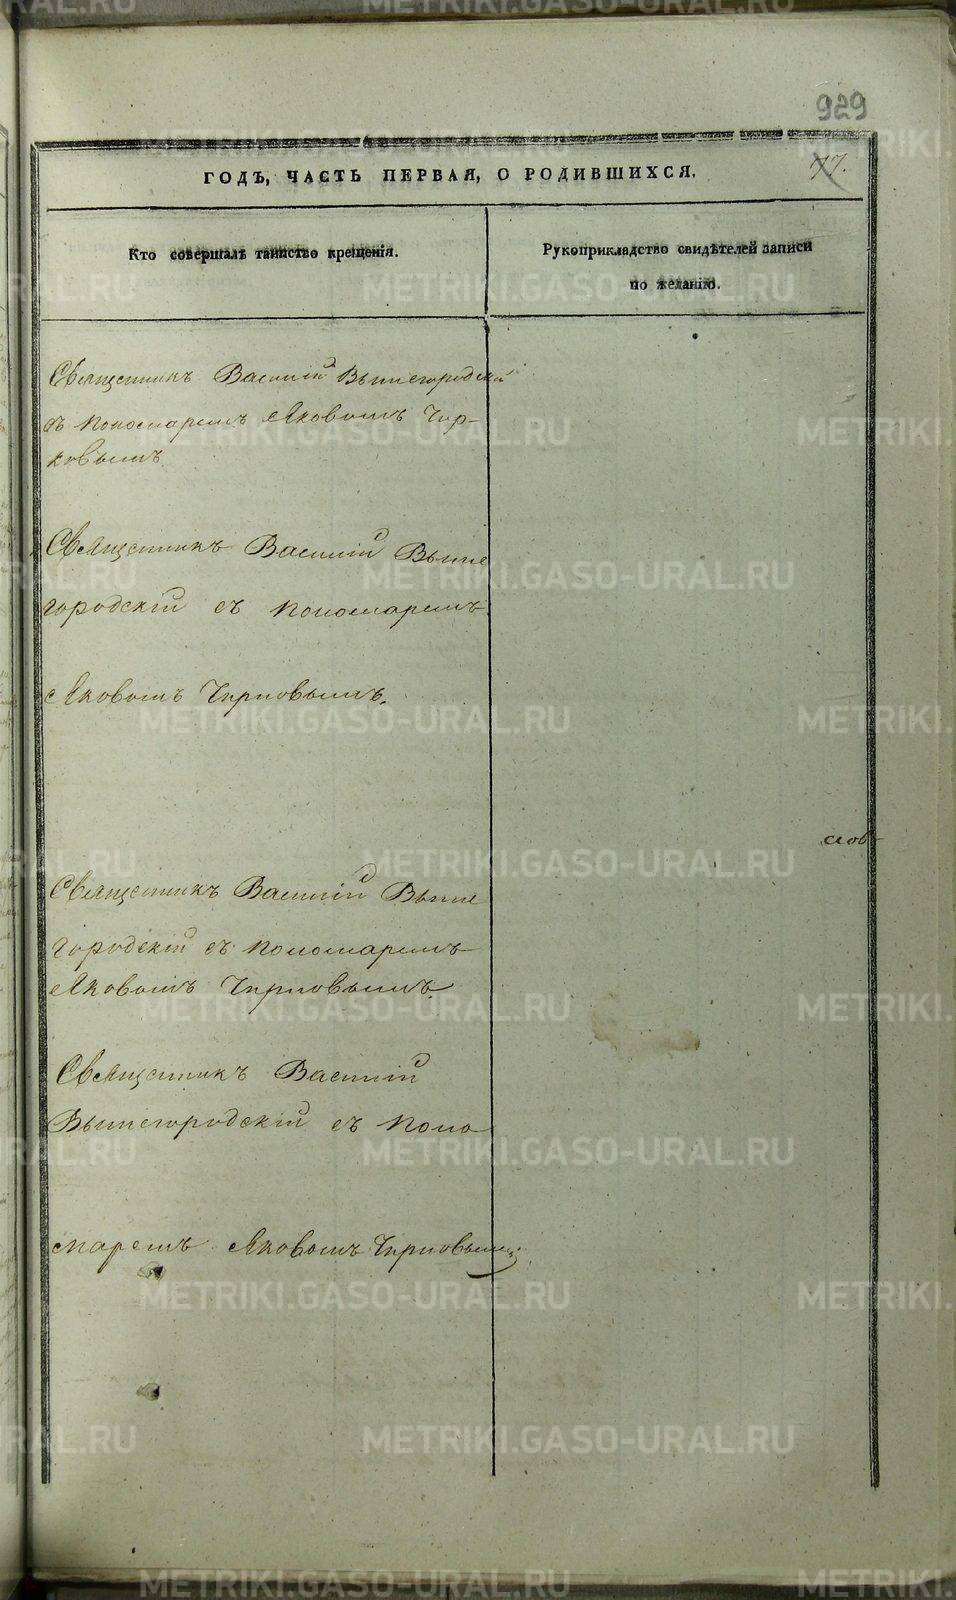 929
77.
ГОДЪ, ЧАСТЬ ПЕРВАЯ, О РОДИВШИХСЯ.
Кто совершалъ таинство крещенія.
Рукоприкладство свидѣтелей записи
по желанію.
Священникъ Василій Вышегородскій
съ пономаремъ Яковомъ Чир-
ковымъ
Священникъ Василій Выше
городскій съ пономаремъ
Яковомъ Чирковымъ.
слов
Священникъ Василій Выше
городскій съ пономаремъ
Яковомъ Чирковымъ.
Священникъ Василій
Вышегородскій съ поно
маремъ Яковомъ Чирковымъ.
METRIKI.GASO-URAL.RU